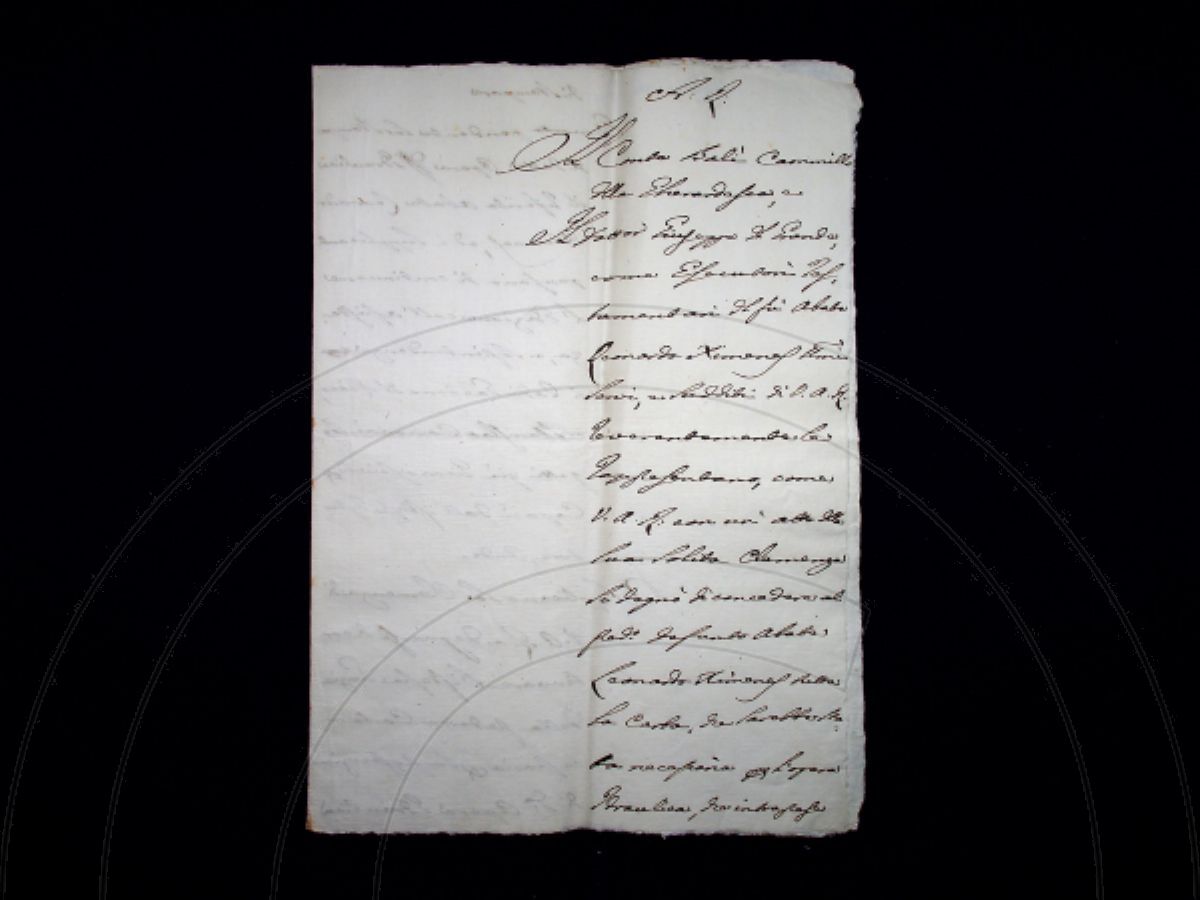 A. R.
Il Conte Balì Cammillo
della Gherardesca, e
Il Dottor Giuseppe Del
come Esecutori Tes,
tamentari del fù Abate
Leonardo Ximenes Umi
lissi, e Sudditi di V. A. R.
reverentemente le
rappresentano, come
V. A. R. con un atto della
sua solita Clemenza
si degnò di concedere al
pred.o defunto Abate
Leonardo Ximenes tutta
la Carta, che sarebbe sta
ta necessaria per l'opera
Idraulica, da intraprese